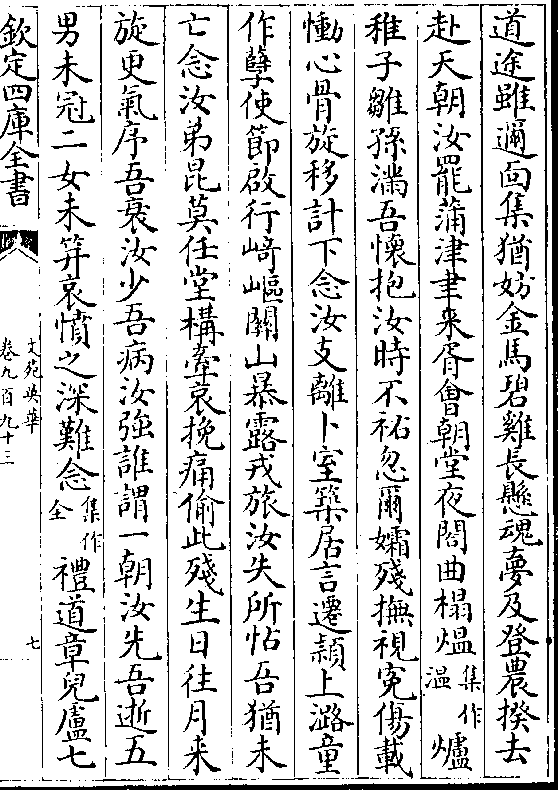 道途雖邇面集猶妨金馬碧雞長懸魂夢及登農揆去
赴天朝汝罷蒲津聿来胥會朝堂夜閤曲榻煴集作温爐
稚子雛孫滿吾懷抱汝時不祐忽爾孀殘撫視寃傷載
慟心骨旋移計下念汝支離卜室築居言遷潁上潞童
作孽使節啟行﨑嶇關山暴露戎旅汝失所怙吾猶未
亡念汝弟昆莫任堂構牽哀挽痛偷此殘生日往月来
旋更氣序吾衰汝少吾病汝強誰謂一朝汝先吾逝五
男未冠二女未筓哀憤之深難念集作全禮道章兒盧七
欽定四庫全書
文苑英華
卷九百九十三
七